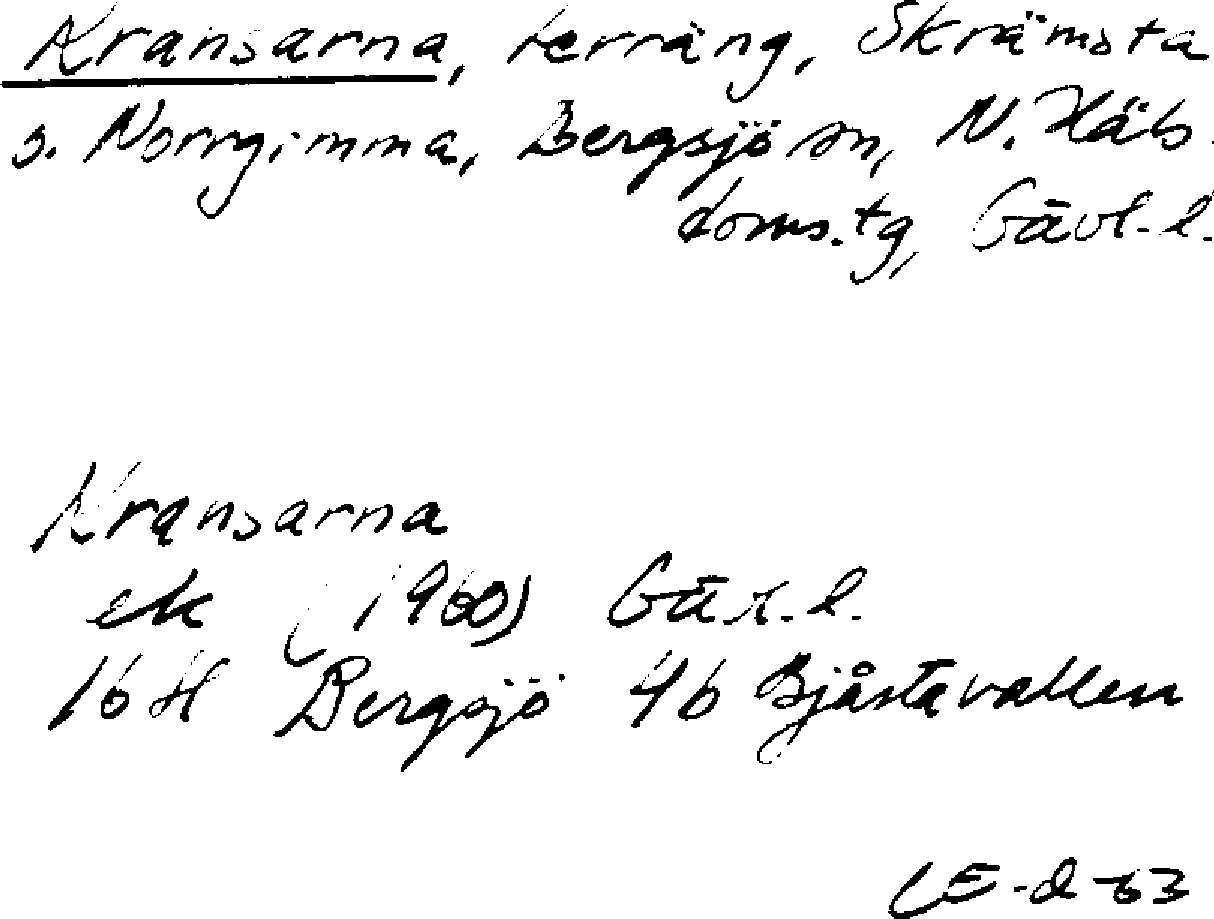 Kransarna, terräng, Skrämsta
o. Norrgimma, Bergsjö sn, N. Häls.
doms.tg, Gävl.l.
Kransarna
ek (1960) Gäv.l.
16H Bergsjö 4b Bjåstavallen
CE-d -63